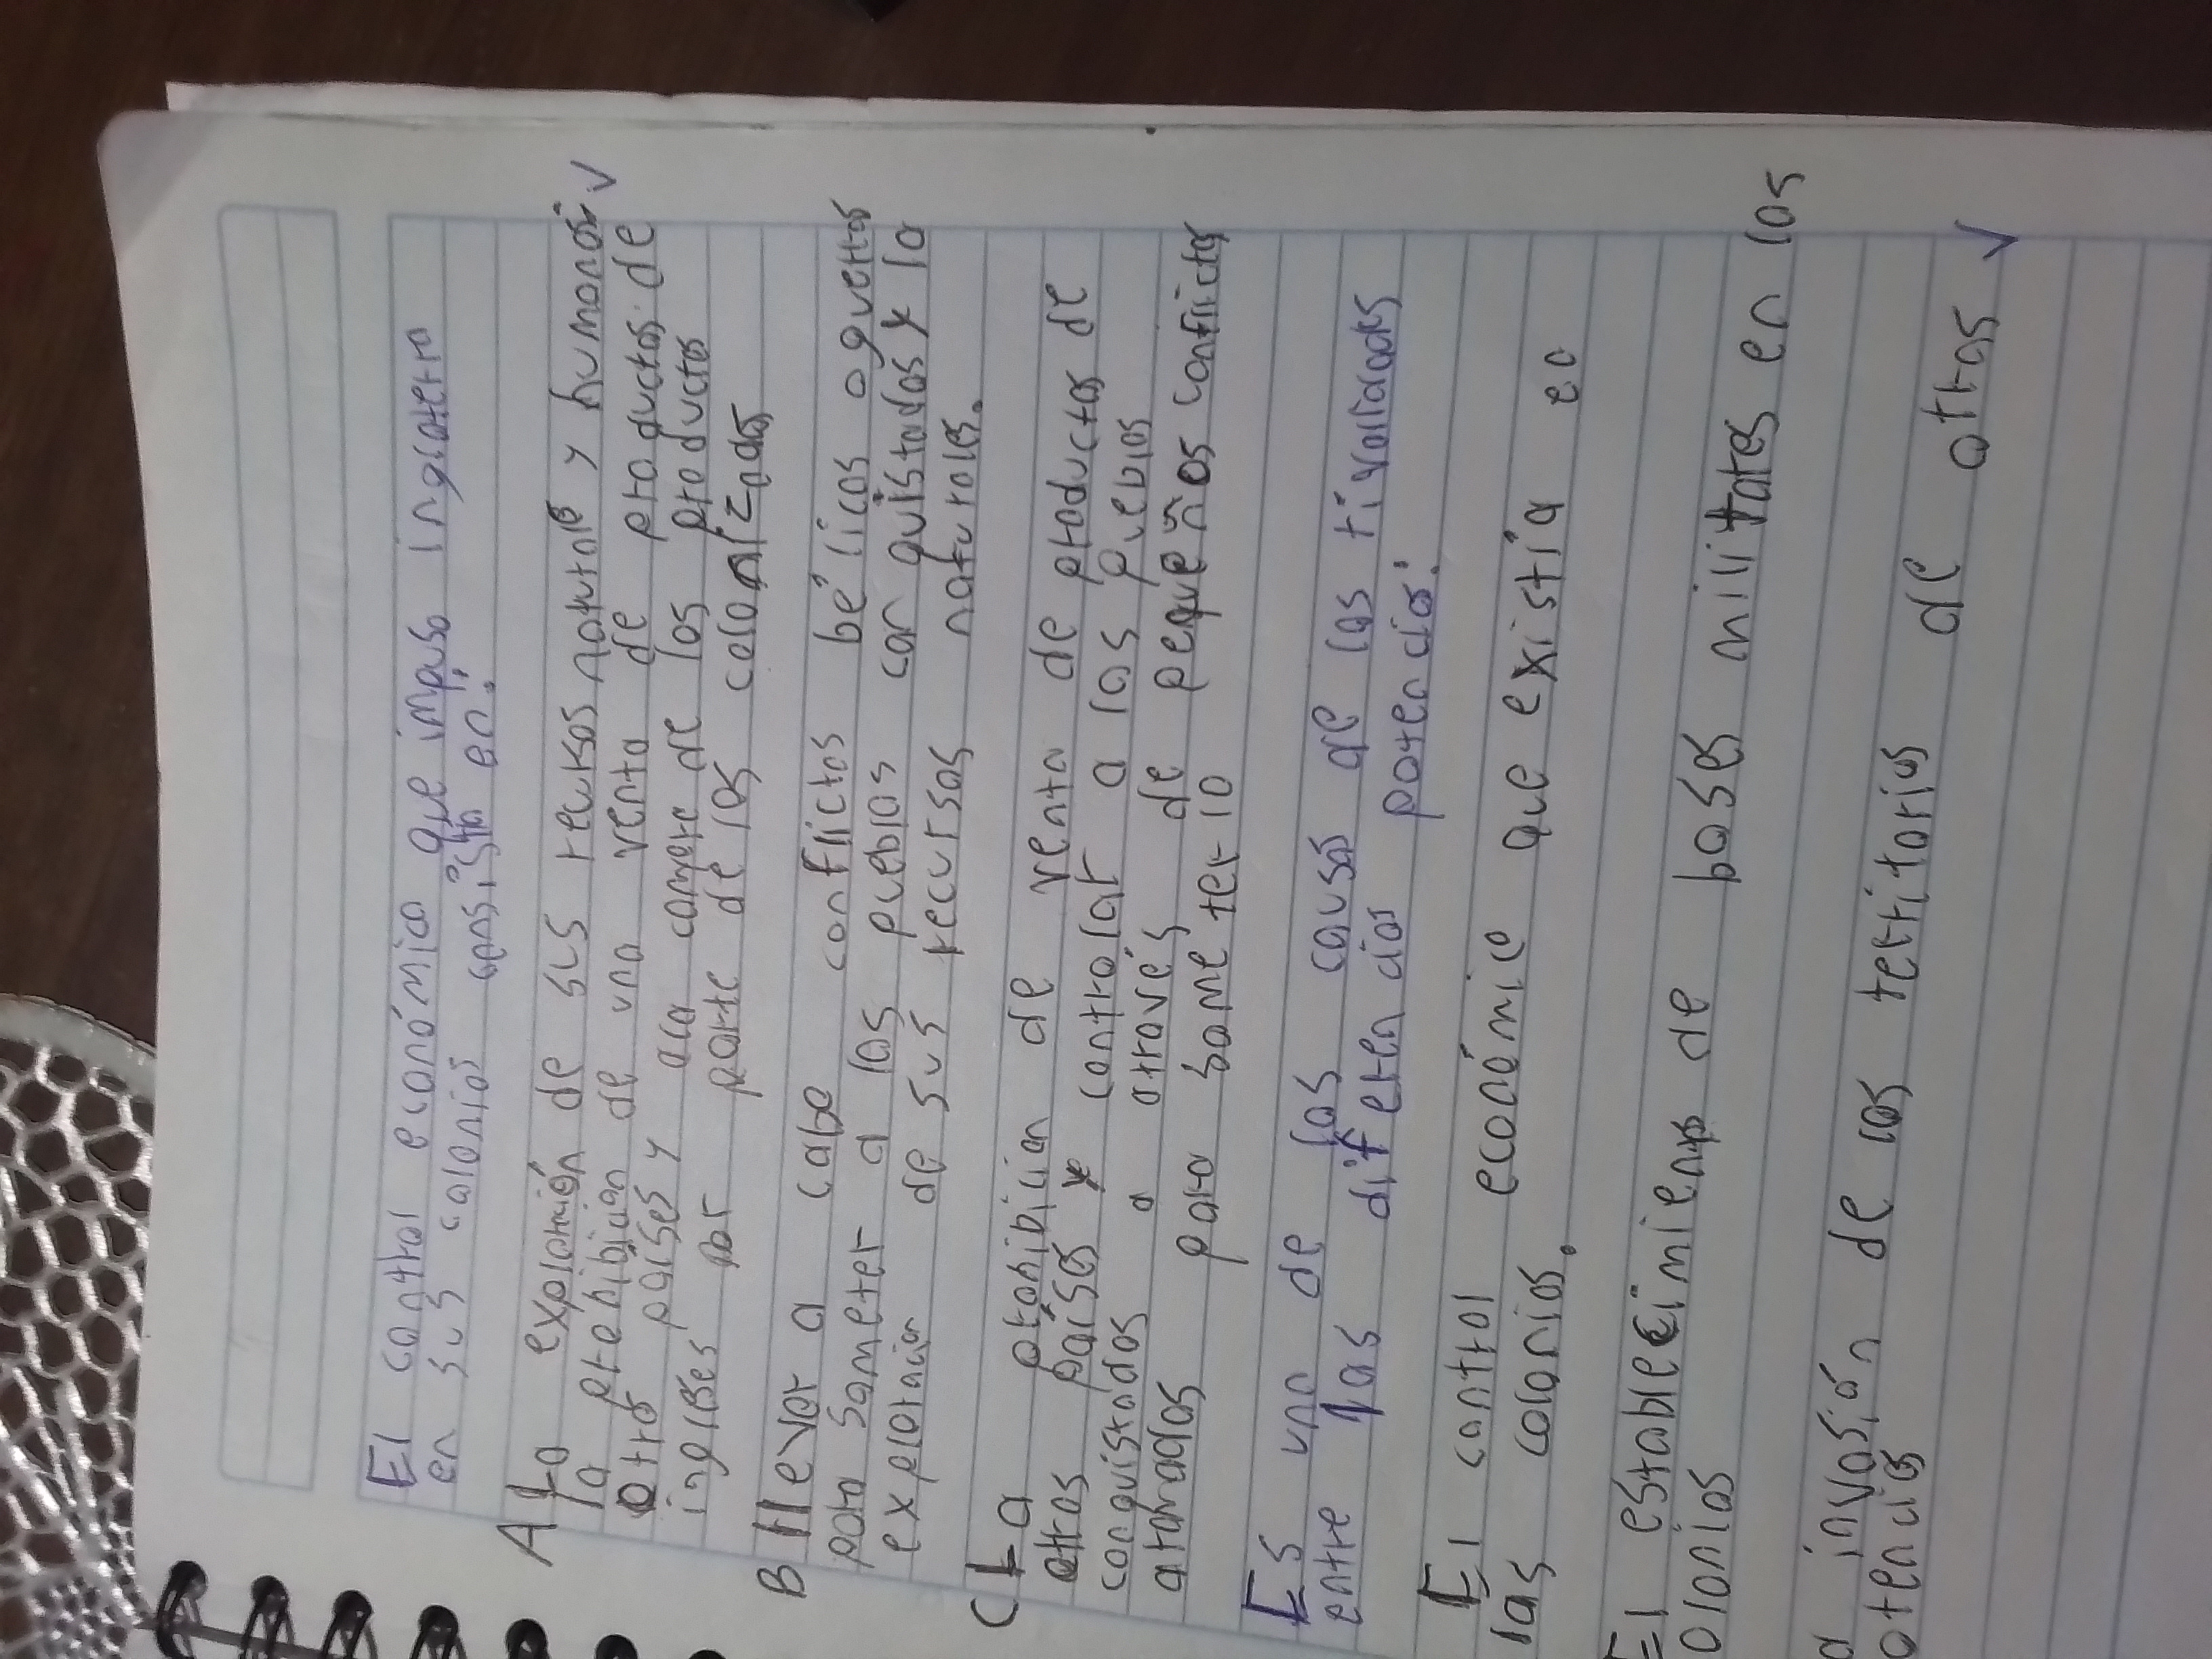 El control económico que impuso inglaterra
en sus colonias consistía en:
A La explotación de sus recursos naturales y humanos. V
la prehibición de una venta de productos de
otros países y a la compra de los productos
ingleses por parte de los colonizados
B llevar a cabo conflictos bélicos o guerras
para someter a los pueblos conquistados y la
explotacion de sus recursos naturales.
C La prohibicion de venta de productos de
otros países y controlar a los pueblos
conquistados a través de pequeños conflictos
armados para someterlo
Es una de las causas de las rivalidades
entre las diferencias potencias:
El control económico que existía en
las colonias.
El establecimiento de bases militares en las
olonias
a invasión de los territorios de otras V
otencias